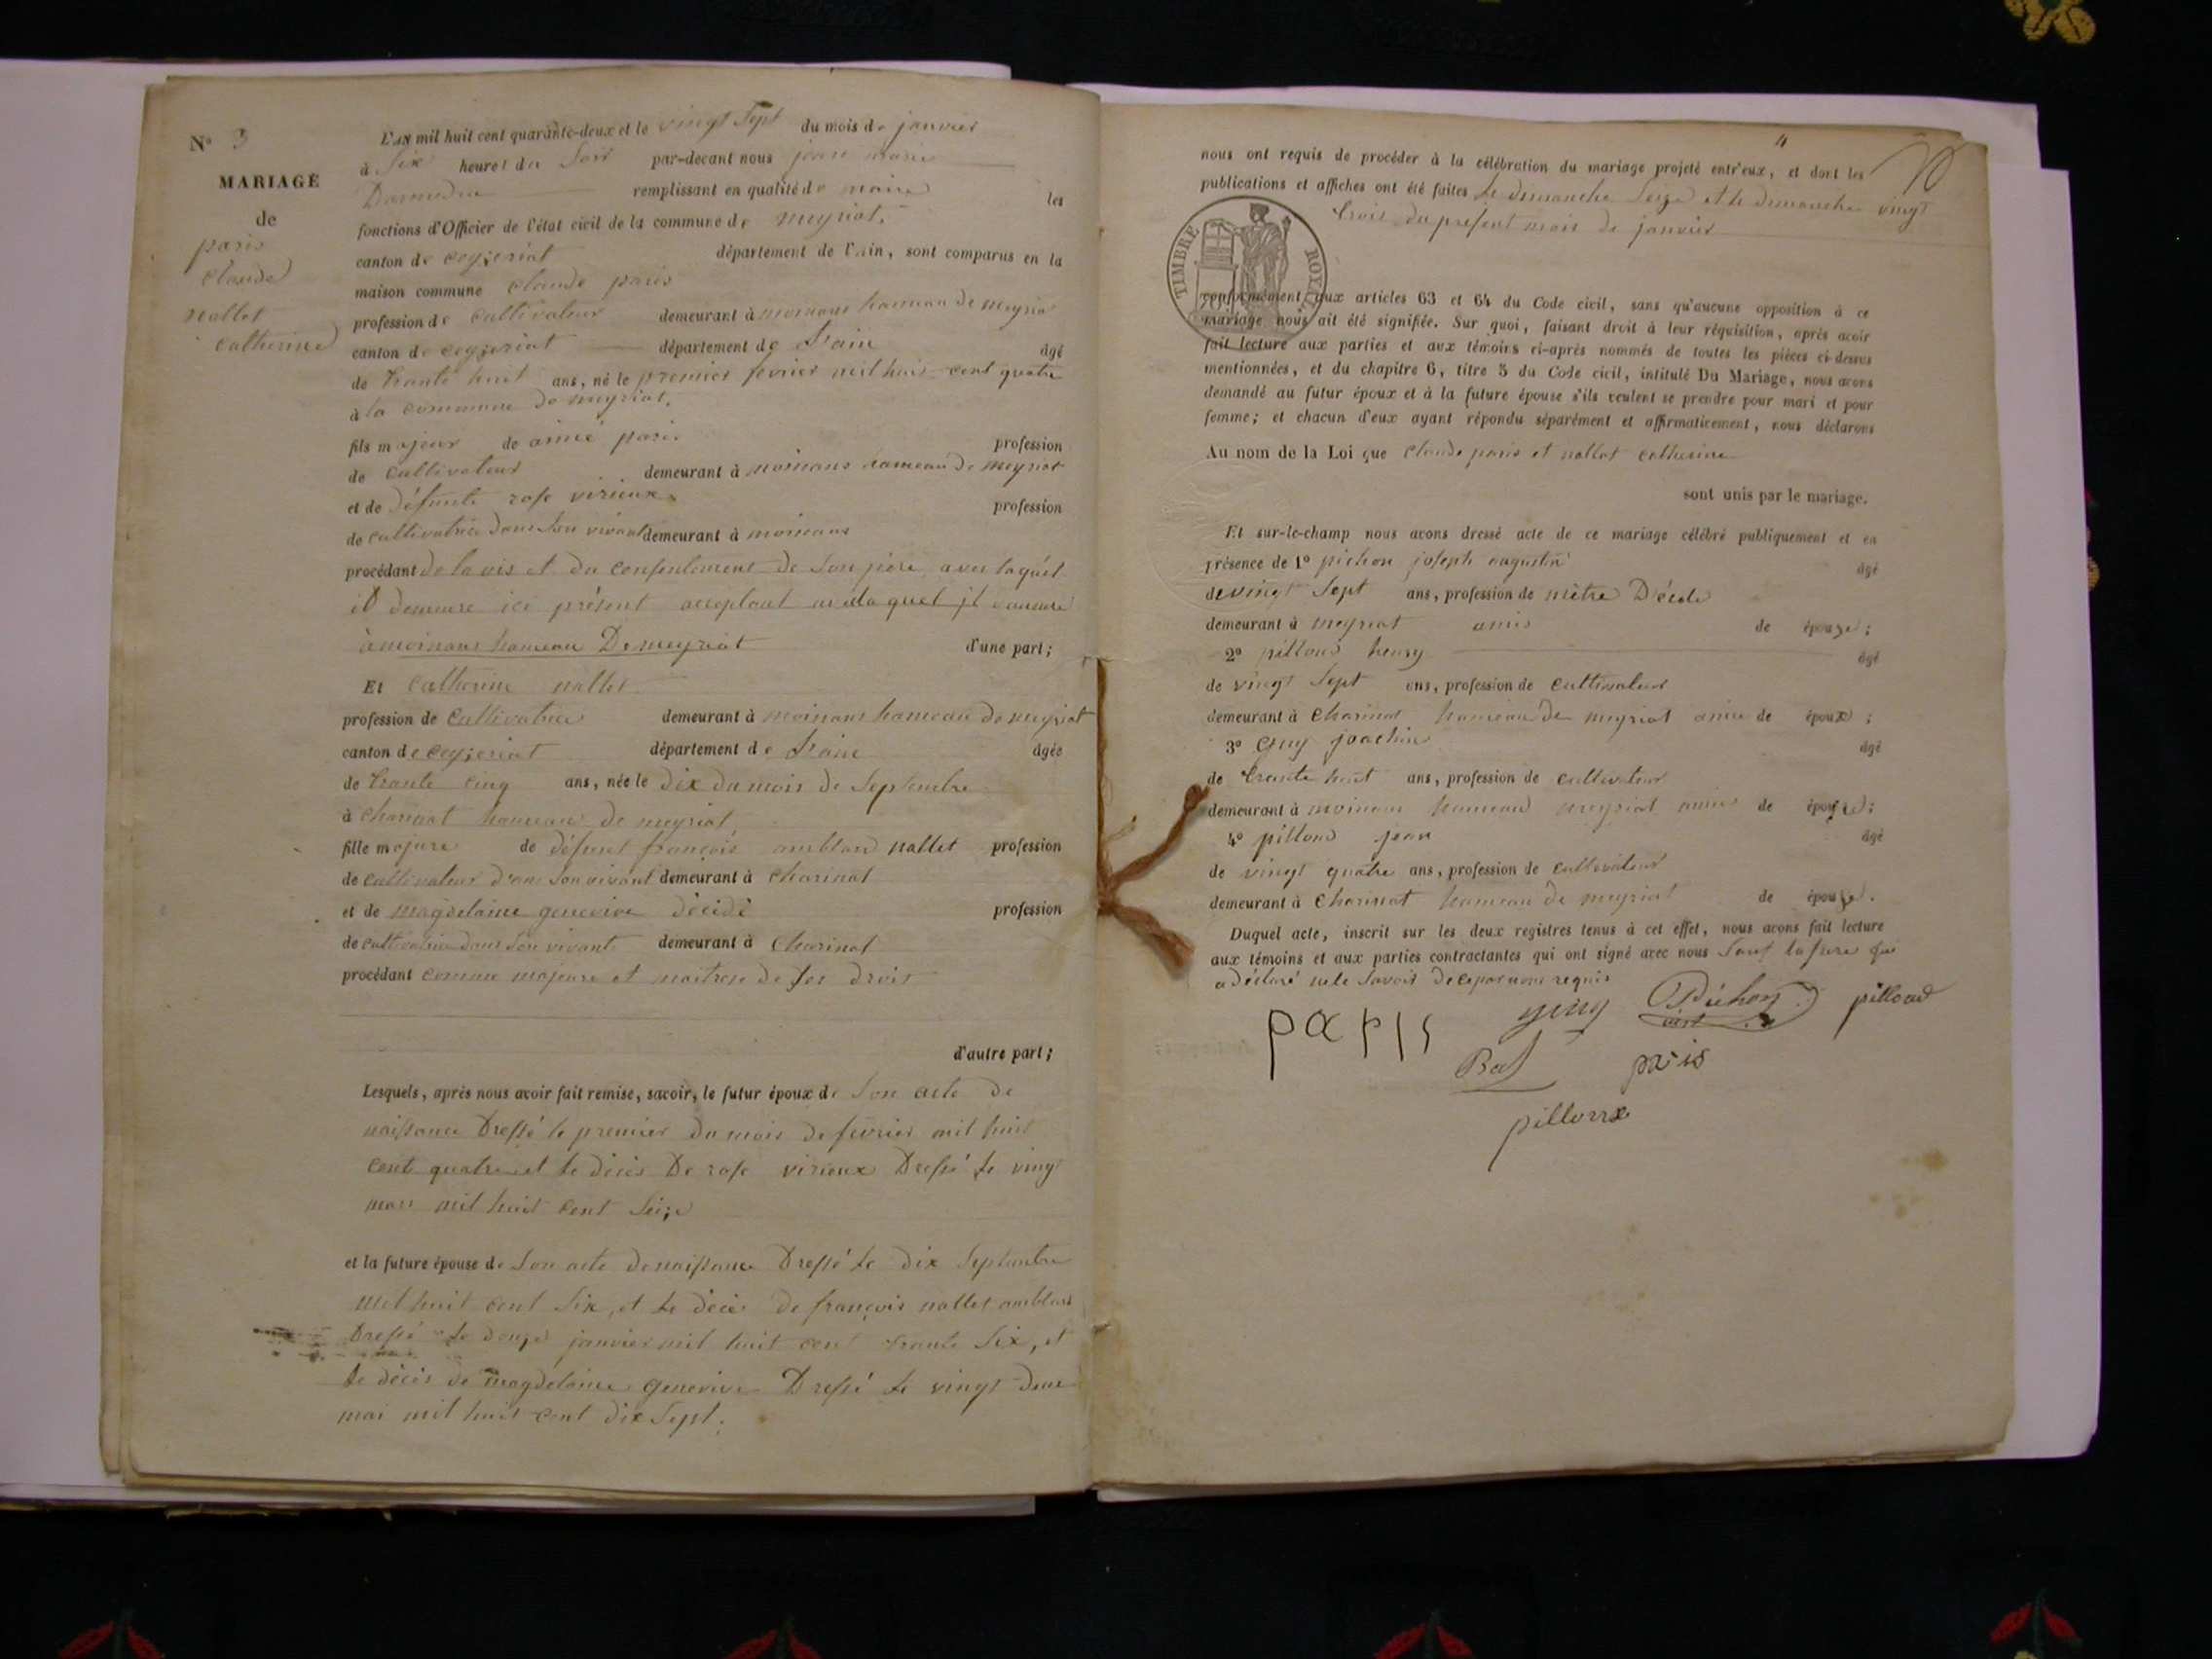 N° 3
MARIAGE
de
paris
claude
nallet
catherine
L'AN mil huit cent quarante-deux et le vingt Sept du mois de janvier
à Six heures du Soir par-devant nous jean marie
remplissant en qualité de maire les
fonctions d'Officier de l'état civil de la commune de meyriat.
canton de ceyzeriat département de l'Ain, sont comparus en la
maison commune claude paris
profession de cultivateur demeurant à moinans hameau de meyriat
canton de ceyzeriat département de l'ain âgé
de trante huit ans, né le premier fevrier mil huit cent quatre
à la commune de meyriat.
fils majeur de aimé paris profession
de cultivateur demeurant à moinans hameau de meyriat
et de défunte rose virieux profession
de cultivatrice dans son vivant demeurant à moinans
procédant de la vis et du consentement de son père avec laquel
il demeure ici présent acceptant laquel il demeure
à moinans hameau De meyriat d'une part;
Et catherine nallet
profession de cultivatrice demeurant à moinans hameau de meyriat
canton de ceyzeriat département de l'ain âgée
de trante cinq ans, née le dix du mois de Septembre
à charinat hameau de meyriat
fille majure de défunt françois amblard nallet profession
de cultivateur d'ans son vivant demeurant à charinat
et de magdelaine genevive décédé profession
de cultivatrice dans son vivante demeurant à charinat
procédant comme majeure et maitrese de ses droits
d'autre part;
Lesquels, après nous avoir fait remise, savoir, le futur époux de son acte de
naissance Dressé le premier du mois de fevrier mil huit
cent quatre et le décès De rose virieux Dressé le vingt
mars mil huit cent seize
et la future épouse de son acte de naissance Dressé le dix Septembre
mil huit cent six, et le décès de françois nallet amblard
Dressé le douze janvier mil huit cent trante Six, et
le décès de magdelaine genevive Dressé le vingt deux
mai mil huit cent dix Sept.
4
nous ont requis de procéder à la célébration du mariage projeté entr'eux, et dont les
publications et affiches ont été faites le dimanche seize et le dimanche vingt
trois du présent mois de janvier
TIMBRE ROYAL
conformément aux articles 63 et 64 du Code civil, sans qu'aucune opposition à ce
mariage nous ait été signifiée. Sur quoi, faisant droit à leur réquisition, après avoir
fait lecture aux parties et aux témoins ci-après nommés de toutes les pièces ci-dessus
mentionnées, et du chapitre 6, titre 5 du Code civil, intitulé Du Mariage, nous avons
demandé au futur époux et à la future épouse s'ils veulent se prendre pour mari et pour
femme; et chacun d'eux ayant répondu séparément et affirmativement, nous déclarons
Au nom de la Loi que claude paris et nallet catherine
sont unis par le mariage.
Et sur-le-champ nous avons dressé acte de ce mariage célébré publiquement et en
présence de 1° pichon joseph augustin âgé
de vingt Sept ans, profession de mètre D'école
demeurant à meyriat amis de épouze;
2° pilloud henry âgé
de vingt Sept ans, profession de cultivateur
demeurant à charinat hameau de meyriat amie de époux;
3° guy joachim âgé
de trante huit ans, profession de cultivateur
demeurant à moinans hameau meyriat amis de épouse;
4° pilloud jean âgé
de vingt quatre ans, profession de cultivateur
demeurant à charinat hameau de meyriat de épouse.
Duquel acte, inscrit sur les deux registres tenus à cet effet, nous avons fait lecture
aux témoins et aux parties contractantes qui ont signé avec nous Sauf qui
a déclaré ne le savoir de ce par nous requis
paris guy Pichon pilloud
paris